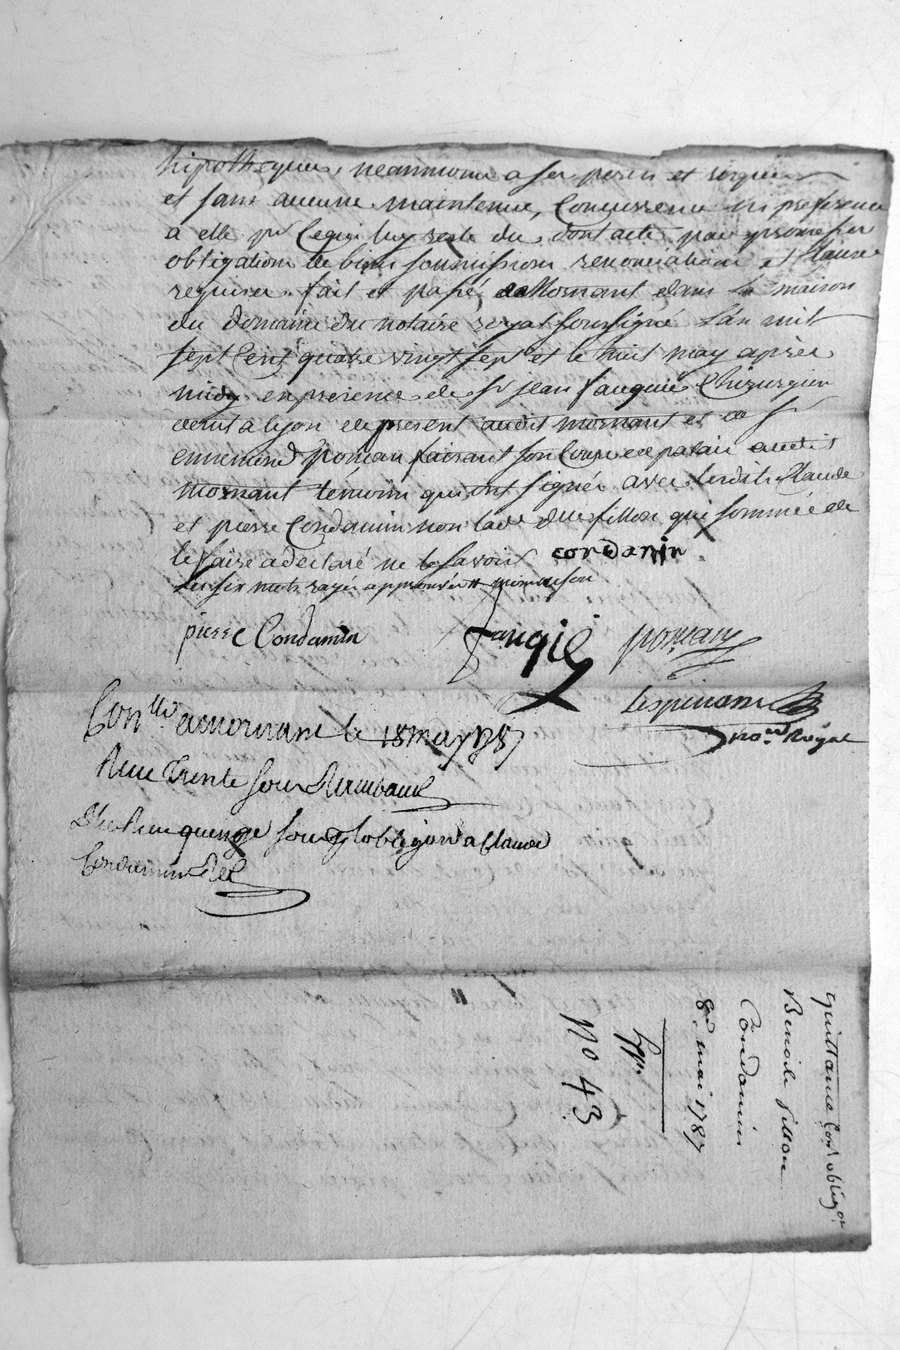 hipotheques, neanmoins a ses perils et risques
et sans aucune maintenue, Concurrence ni preference
a elle pr Ce qui luy reste du, dont acte, par promesses
obligations de biens soumissions renonciations et Clauses
requises. fait et passé a Mornant dans la maison
du domaine du notaire royal soussigné L'an mil
sept Cent quatre vingt sept et le huit may après
midy en presence de Sr jean fauquié Chirurgien
a lyon de present audit mornant et de Sr
ennemond ponçan faisant son Cours de palais audit
Mornant temoins qui ont signés avec lesdits Claude
et pierre Condamin non lad. fillon que sommée de
le faire a declaré ne le Savoir condamin
Les six mots rayés approuvés
pierre Condamin fauqié ponçan
Lespinasse
no.re Royal
Con.llé a mornant le 18 may 1787
Reçu Trente sous
quinze sous pr l'obligaon a Claude
Condamin
quittance Cont obligon
Benoite fillon
Condamin
8e mai 1787
No 43